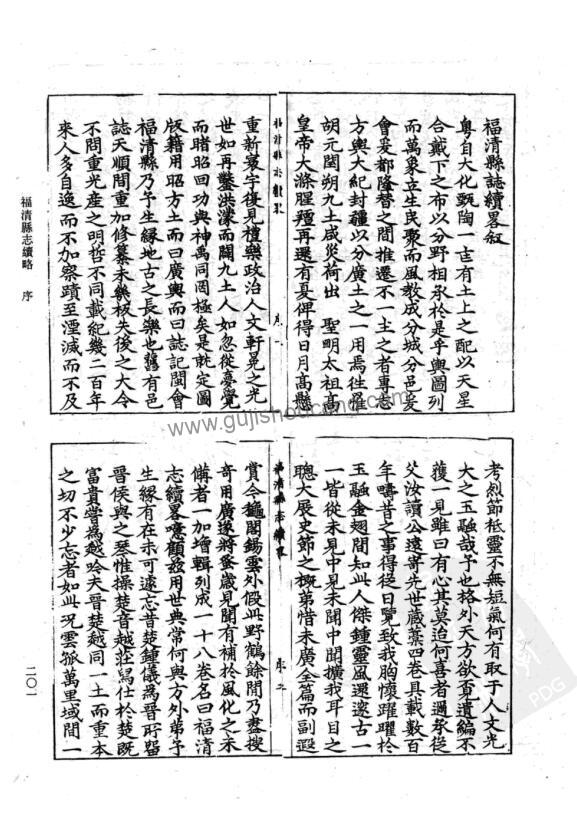 福清縣誌續畧敘
粵自大化甄陶一𠮷有土上之配以天星
合戴下之布以分野相承於是乎輿圖列
而萬象立生民聚而風教成分城分邑爰
會爰都隆替之間推遷不一主之者專志
方輿大紀封疆以分廣土之一用焉往罹
胡元閏朔九土咸災荷出 聖明太祖高
皇帝大滌腥羶再還有夏俾得日月高懸
重新寰宇復見禮樂政治人文軒冕之光
世如再鑿洪濛而闢九土人如忽從夢覺
而睹昭回功與神禹同罔極矣是就定圖
版籍用昭方土而曰廣輿而曰誌記閩會
福清縣乃予生緣地古之長樂也舊有邑
誌天順間重加修纂未幾板失後之大令
不問重光産之明哲不同載紀幾二百年
來人多自逸而不加察蹟至湮滅而不及
福清縣志續畧
序 一
考烈節祗靈不無短氣何有取于人文光
大之玉融哉予也格外天方欲覓遺編不
獲一見雖曰有心其莫迫何喜者遇叅從
父汝讀公遠寄先世歲藁四卷具載數百
年疇昔之事得從日覽致我胸懷躍躍於
玉融金翅間知此人傑鍾靈風還邃古一
一皆從未見中見未聞中聞擴我耳目之
聰大展史節之概第惜未廣全篇而副遐
賞令樞閣錫雲外假與野鶴餘閒乃盡搜
奇用廣遂將耋歲見聞有補於風化之未
備者一加增輯列成一十八卷名曰福清
志續畧噫顧茲用世典常何與方外弟予
生緣有在未可遽忘昔楚鍾儀爲晉所留
晉侯與之琴惟操楚音越莊爲仕於楚既
富貴嘗爲越吟夫晉楚越同一土而重本
之切不少忘者如此況雲孤萬里域間一
福清縣志續畧
序 二
福清縣志續略 序
二〇一
www.gujishoucang.com
PDG